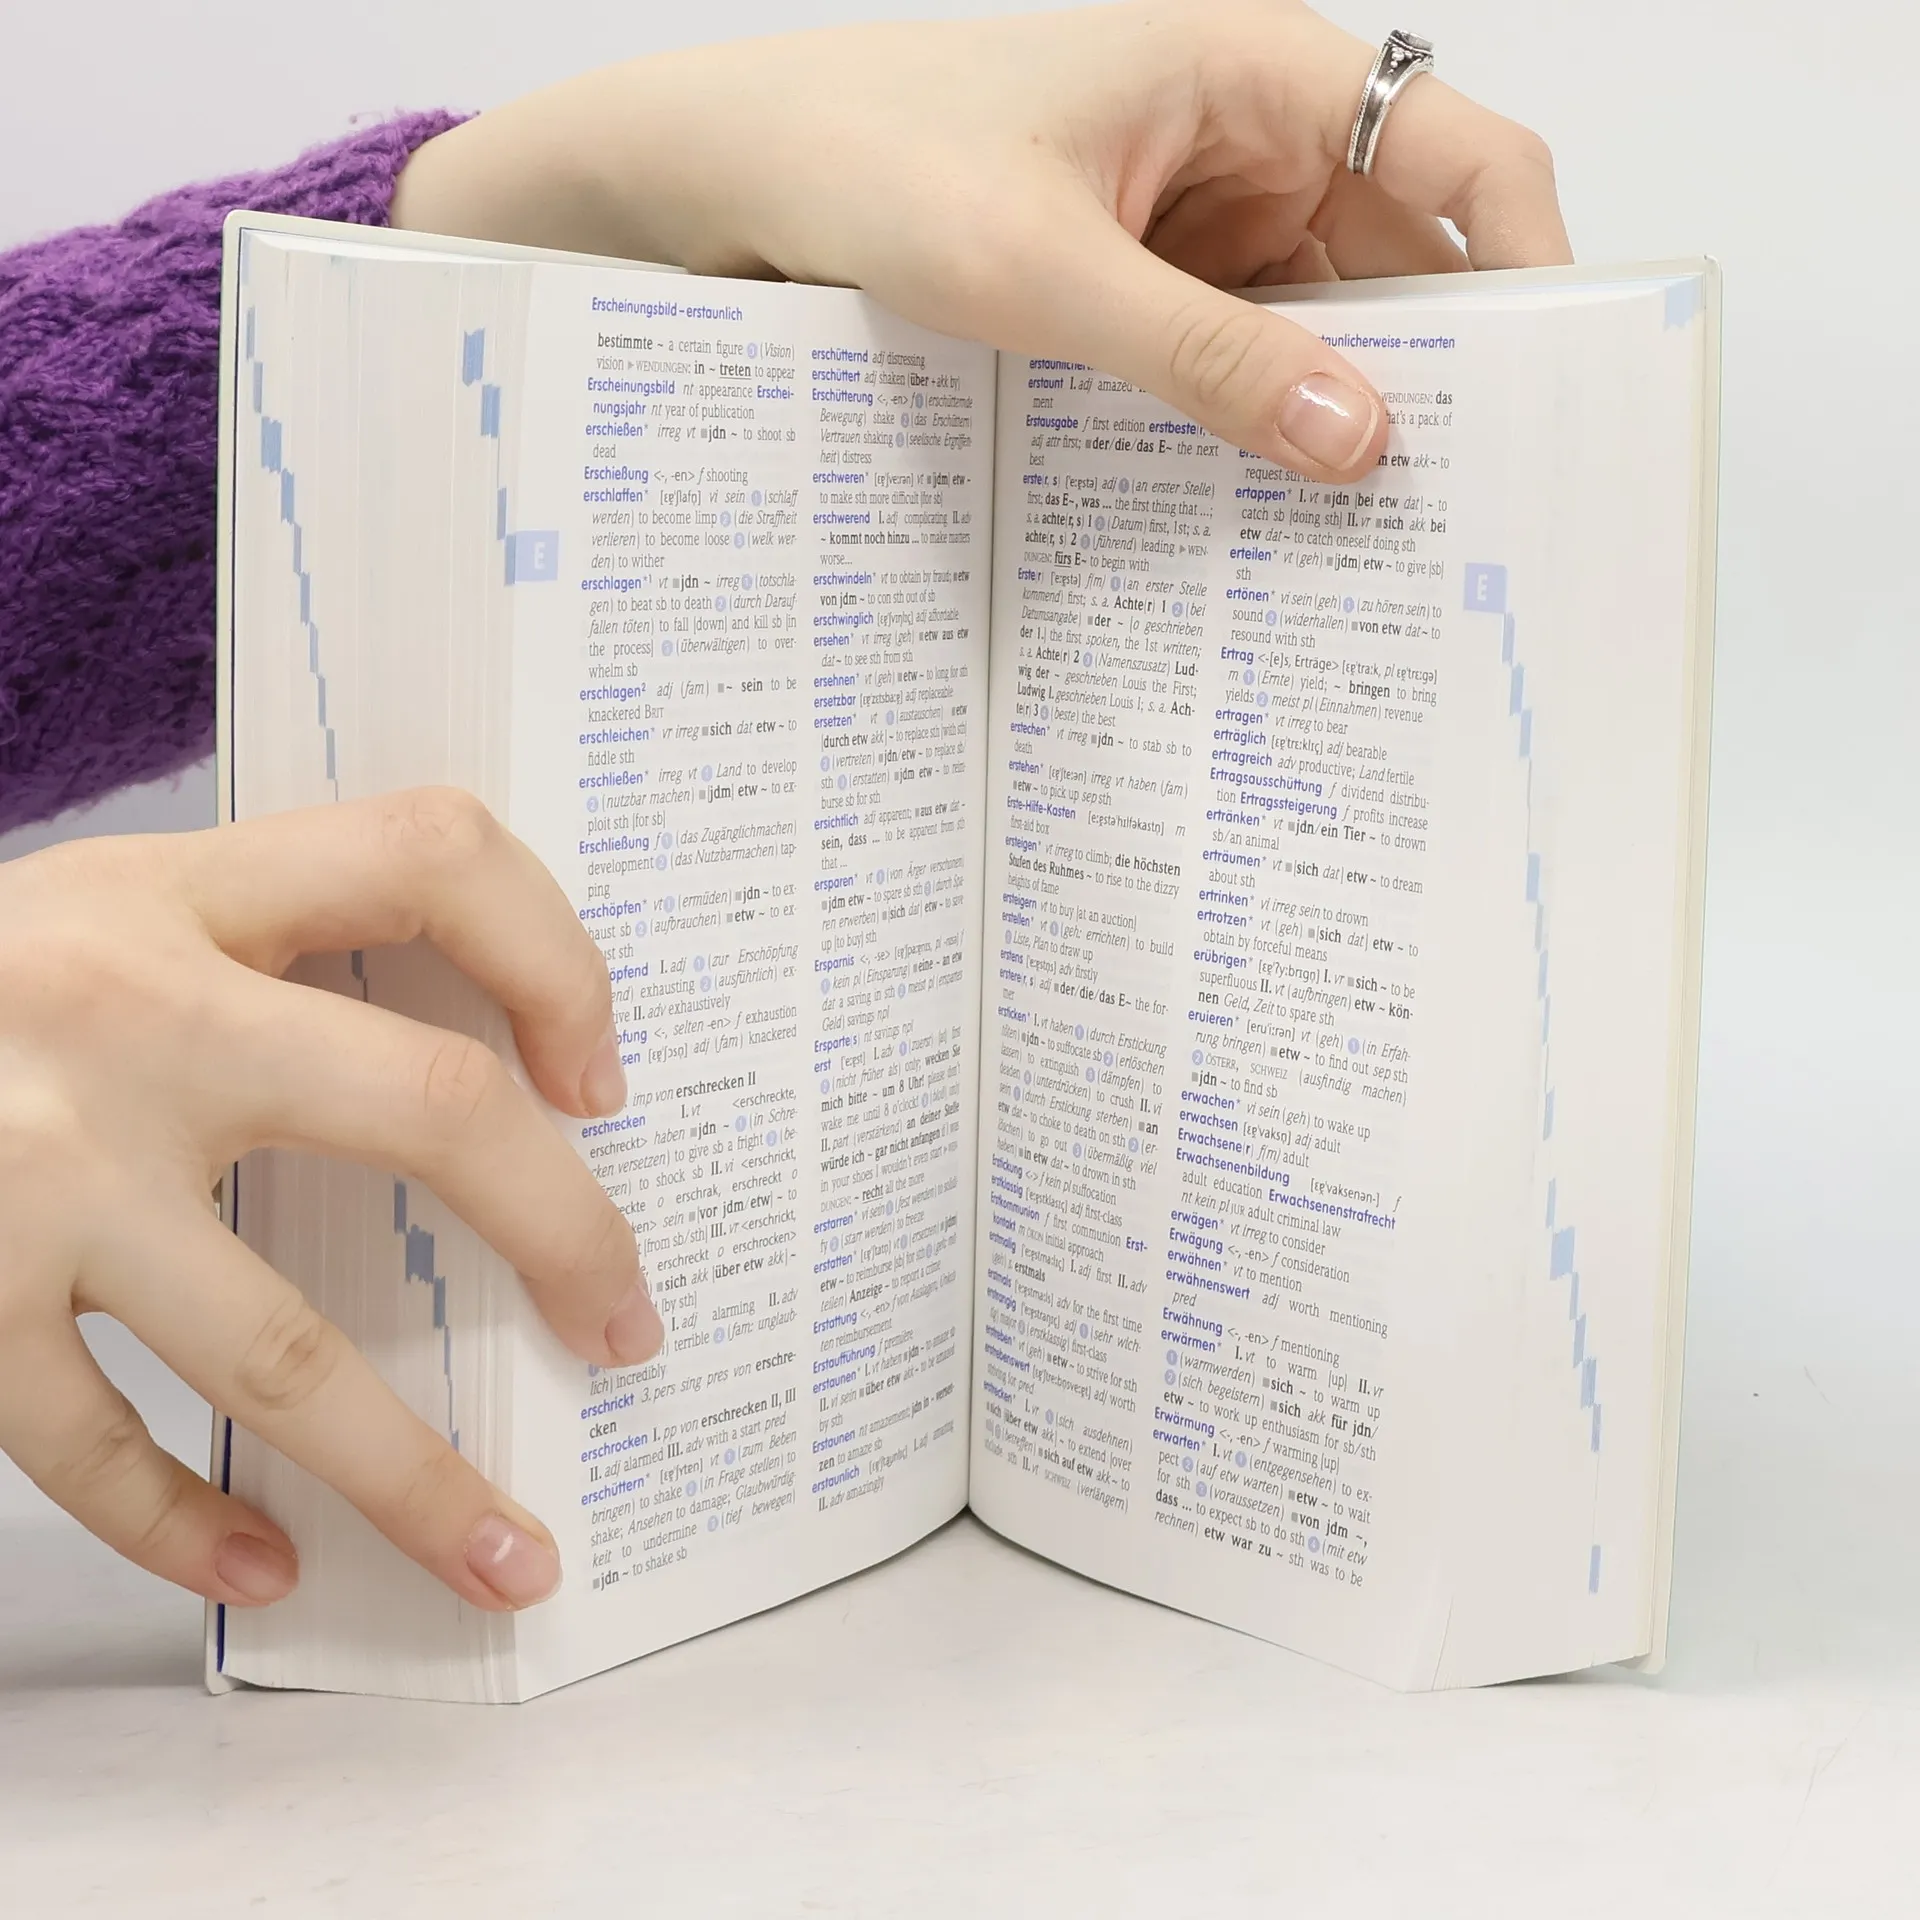 Erscheinungsbild – erstaunlich
bestimmte ~ a certain figure ③ (Vision)
vision ▸ WENDUNGEN: in ~ treten to appear
Erscheinungsbild nt appearance Erschei-
nungsjahr nt year of publication
erschießen* irreg vt ■jdn ~ to shoot sb
dead
Erschießung <-, -en> f shooting
erschlaffen* [ɛɐ̯ˈʃlafn̩] vi sein ① (schlaff
werden) to become limp ② (die Straffheit
verlieren) to become loose ③ (welk wer-
den) to wither
erschlagen*¹ vt ■jdn ~ irreg ① (totschla-
gen) to beat sb to death ② (durch Darauf-
fallen töten) to fall |down| and kill sb |in
the process| ③ (überwältigen) to over-
whelm sb
erschlagen² adj (fam) ■~ sein to be
knackered BRIT
erschleichen* vr irreg ■sich dat etw ~ to
fiddle sth
erschließen* irreg vt ① Land to develop
② (nutzbar machen) ■|jdm| etw ~ to ex-
ploit sth |for sb|
Erschließung f ① (das Zugänglichmachen)
development ② (das Nutzbarmachen) tap-
ping
erschöpfen* vt ① (ermüden) ■jdn ~ to ex-
haust sb ② (aufbrauchen) ■etw ~ to ex-
ust sth
öpfend I. adj ① (zur Erschöpfung
end) exhausting ② (ausführlich) ex-
ive II. adv exhaustively
pfung <-, selten -en> f exhaustion
sen [ɛɐ̯ˈʃɔsn̩] adj (fam) knackered
imp von erschrecken II
erschrecken I. vt <erschreckte,
erschreckt> haben ■jdn ~ ① (in Schre-
cken versetzen) to give sb a fright ② (be-
rzen) to shock sb II. vi <erschrickt,
eckte o erschrak, erschreckt o
ken> sein ■|vor jdm/etw| ~ to
|from sb/sth| III. vr <erschrickt,
erschreckt o erschrocken>
■sich akk |über etw akk| ~
|by sth|
I. adj alarming II. adv
terrible ② (fam: unglaub-
lich) incredibly
erschrickt 3. pers sing pres von erschre-
cken
erschrocken I. pp von erschrecken II, III
II. adj alarmed III. adv with a start pred
erschüttern* [ɛɐ̯ˈʃʏtɐn] vt ① (zum Beben
bringen) to shake ② (in Frage stellen) to
shake; Ansehen to damage; Glaubwürdig-
keit to undermine ③ (tief bewegen)
■jdn ~ to shake sb
E
erschütternd adj distressing
erschüttert adj shaken |über +akk by|
Erschütterung <-, -en> f ① (erschütternde
Bewegung) shake ② (das Erschüttern)
Vertrauen shaking ③ (seelische Ergriffen-
heit) distress
erschweren* [ɛɐ̯ˈʃveːrən] vt ■|jdm| etw ~
to make sth more difficult |for sb|
erschwerend I. adj complicating II. adv
~ kommt noch hinzu ... to make matters
worse...
erschwindeln* vt to obtain by fraud; ■etw
von jdm ~ to con sth out of sb
erschwinglich [ɛɐ̯ˈʃvɪŋlɪç] adj affordable
ersehen* vt irreg (geh) ■etw aus etw
dat ~ to see sth from sth
ersehnen* vt (geh) ■etw ~ to long for sth
ersetzbar [ɛɐ̯ˈzɛtsbaːɐ̯] adj replaceable
ersetzen* vt ① (austauschen) ■etw
|durch etw akk| ~ to replace sth |with sth|
② (vertreten) ■jdn/etw ~ to replace sb/
sth ③ (erstatten) ■jdm etw ~ to reim-
burse sb for sth
ersichtlich adj apparent; ■aus etw dat ~
sein, dass ... to be apparent from sth
that ...
ersparen* vt ① (von Ärger verschonen)
■jdm etw ~ to spare sb sth ② (durch Spa-
ren erwerben) ■|sich dat| etw ~ to save
up |to buy| sth
Ersparnis <-, -se> [ɛɐ̯ˈʃpaːɐ̯nɪs, pl -nɪsə] f
① kein pl (Einsparung) ■eine ~ an etw
dat a saving in sth ② meist pl (erspartes
Geld) savings npl
Ersparte(s) nt savings npl
erst [ˈeːɐ̯st] I. adv ① (zuerst) |at| first
② (nicht früher als) only; wecken Sie
mich bitte ~ um 8 Uhr! please don't
wake me until 8 o'clock! ③ (bloß) only
II. part (verstärkend) an deiner Stelle
würde ich ~ gar nicht anfangen if I was
in your shoes I wouldn't even start ▸ WEN-
DUNGEN: ~ recht all the more
erstarren* vi sein ① (fest werden) to solidi-
fy ② (starr werden) to freeze
erstatten* [ɛɐ̯ˈʃtatn̩] vt ① (ersetzen) ■|jdm|
etw ~ to reimburse |sb| for sth ② (geh: mit-
teilen) Anzeige ~ to report a crime
Erstattung <-, -en> f von Auslagen, Unkos-
ten reimbursement
Erstaufführung f première
erstaunen* I. vt haben ■jdn ~ to amaze sb
II. vi sein ■über etw akk ~ to be amazed
by sth
Erstaunen nt amazement; jdn in ~ verset-
zen to amaze sb
erstaunlich [ɛɐ̯ˈʃtaunlɪç] I. adj amazing
II. adv amazingly
taunlicherweise – erwarten
erstaunt I. adj amazed
ment
Erstausgabe f first edition erstbeste(r,
adj attr first; ■der/die/das E~ the next
best
erste(r, s) [ˈeːɐ̯stə] adj ① (an erster Stelle)
first; das E~, was ... the first thing that ...;
s. a. achte(r, s) 1 ② (Datum) first, 1st; s. a.
achte(r, s) 2 ③ (führend) leading ▸ WEN-
DUNGEN: fürs E~ to begin with
Erste(r) [ˈeːɐ̯stə] f(m) ① (an erster Stelle
kommend) first; s. a. Achte(r) 1 ② (bei
Datumsangabe) ■der ~ [o geschrieben
der 1.] the first spoken, the 1st written;
s. a. Achte(r) 2 ③ (Namenszusatz) Lud-
wig der ~ geschrieben Louis the First;
Ludwig I. geschrieben Louis I; s. a. Ach-
te(r) 3 ④ (beste) the best
erstechen* vt irreg ■jdn ~ to stab sb to
death
erstehen* [ɛɐ̯ˈʃteːən] irreg vt haben (fam)
■etw ~ to pick up sep sth
Erste-Hilfe-Kasten [eːɐ̯stəˈhɪlfəkastn̩] m
first-aid box
ersteigen* vt irreg to climb; die höchsten
Stufen des Ruhmes ~ to rise to the dizzy
heights of fame
ersteigern vt to buy |at an auction|
erstellen* vt ① (geh: errichten) to build
② Liste, Plan to draw up
erstens [ˈeːɐ̯stn̩s] adv firstly
erstere(r, s) adj ■der/die/das E~ the for-
mer
ersticken* I. vt haben ① (durch Erstickung
töten) ■jdn ~ to suffocate sb ② (erlöschen
lassen) to extinguish ③ (dämpfen) to
deaden ④ (unterdrücken) to crush II. vi
sein ① (durch Erstickung sterben) ■an
etw dat ~ to choke to death on sth ② (er-
löschen) to go out ③ (übermäßig viel
haben) ■in etw dat ~ to drown in sth
Erstickung <-> f kein pl suffocation
erstklassig [ˈeːɐ̯stklasɪç] adj first-class
Erstkommunion f first communion Erst-
kontakt m ÖKON initial approach
erstmalig [ˈeːɐ̯stmaːlɪç] I. adj first II. adv
(geh) s. erstmals
erstmals [ˈeːɐ̯stmaːls] adv for the first time
erstrangig [ˈeːɐ̯straŋɪç] adj ① (sehr wich-
tig) major ② (erstklassig) first-class
erstreben* vt (geh) ■etw ~ to strive for sth
erstrebenswert [ɛɐ̯ˈʃtreːbn̩sveːɐ̯t] adj worth
striving for pred
erstrecken* I. vr ① (sich ausdehnen)
■sich |über etw akk| ~ to extend |over
sth| ② (betreffen) ■sich auf etw akk ~ to
include sth II. vt SCHWEIZ (verlängern)
WENDUNGEN: das
hat's a pack of
m etw akk ~ to
request sth
ertappen* I. vt ■jdn |bei etw dat| ~ to
catch sb |doing sth| II. vr ■sich akk bei
etw dat ~ to catch oneself doing sth
erteilen* vt (geh) ■|jdm| etw ~ to give |sb|
sth
ertönen* vi sein (geh) ① (zu hören sein) to
sound ② (widerhallen) ■von etw dat ~ to
resound with sth
Ertrag <-[e]s, Erträge> [ɛɐ̯ˈtraːk, pl ɛɐ̯ˈtrɛːgə]
m ① (Ernte) yield; ~ bringen to bring
yields ② meist pl (Einnahmen) revenue
ertragen* vt irreg to bear
erträglich [ɛɐ̯ˈtrɛːklɪç] adj bearable
ertragreich adv productive; Land fertile
Ertragsausschüttung f dividend distribu-
tion Ertragssteigerung f profits increase
ertränken* vt ■jdn/ein Tier ~ to drown
sb/an animal
erträumen* vt ■|sich dat| etw ~ to dream
about sth
ertrinken* vi irreg sein to drown
ertrotzen* vt (geh) ■|sich dat| etw ~ to
obtain by forceful means
erübrigen* [ɛɐ̯ˈʔyːbrɪgn̩] I. vr ■sich ~ to be
superfluous II. vt (aufbringen) etw ~ kön-
nen Geld, Zeit to spare sth
eruieren* [eruˈiːrən] vt (geh) ① (in Erfah-
rung bringen) ■etw ~ to find out sep sth
② ÖSTERR, SCHWEIZ (ausfindig machen)
■jdn ~ to find sb
erwachen* vi sein (geh) to wake up
erwachsen [ɛɐ̯ˈvaksn̩] adj adult
Erwachsene(r) f(m) adult
Erwachsenenbildung [ɛɐ̯ˈvaksənən-] f
adult education Erwachsenenstrafrecht
nt kein pl JUR adult criminal law
erwägen* vt irreg to consider
Erwägung <-, -en> f consideration
erwähnen* vt to mention
erwähnenswert adj worth mentioning
pred
Erwähnung <-, -en> f mentioning
erwärmen* I. vt to warm |up| II. vr
① (warmwerden) ■sich ~ to warm up
② (sich begeistern) ■sich akk für jdn/
etw ~ to work up enthusiasm for sb/sth
Erwärmung <-, -en> f warming |up|
erwarten* I. vt ① (entgegensehen) to ex-
pect ② (auf etw warten) ■etw ~ to wait
for sth ③ (voraussetzen) ■von jdm ~,
dass ... to expect sb to do sth ④ (mit etw
rechnen) etw war zu ~ sth was to be
E